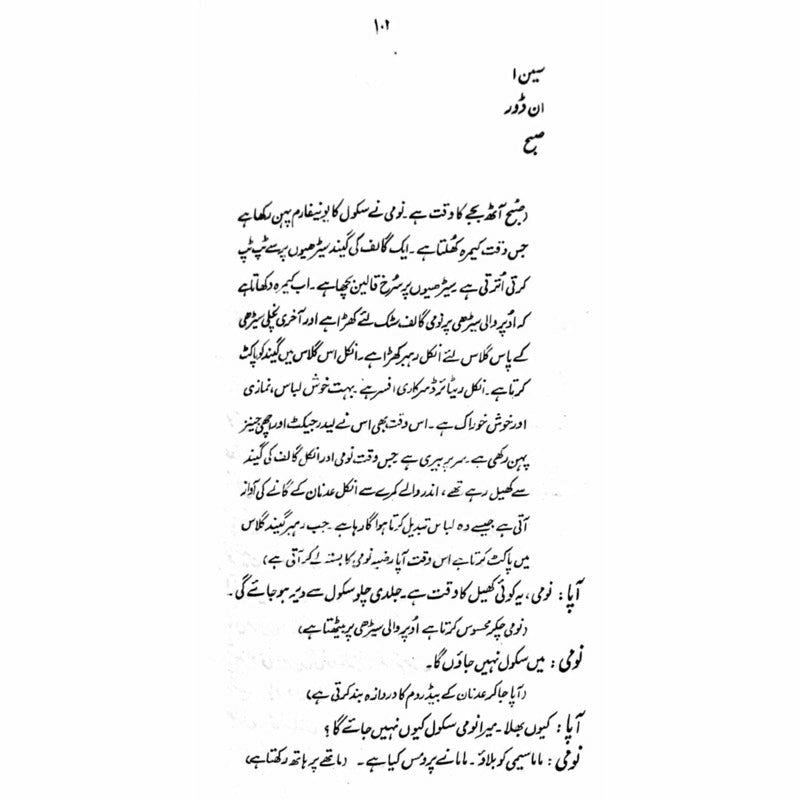 ۱۰۲
سین ۱
ان ڈور
صبح
(صبح آٹھ بجے کا وقت ہے۔ نومی نے سکول کا یونیفارم پہن رکھا ہے
جس وقت کیمرہ کھلتا ہے۔ ایک گالف کی گیند سیڑھیوں پر سے ٹپ ٹپ
کرتی اُترتی ہے سیڑھیوں پر سُرخ قالین بچھا ہے۔ اب کیمرہ دکھاتا ہے
کہ اُوپر والی سیڑھی پر نومی گالف سٹک لئے کھڑا ہے اور آخری نچلی سیڑھی
کے پاس گلاس لئے انکل رہبر کھڑا ہے۔ انکل اس گلاس میں گیند کو پاکٹ
کرتا ہے۔ انکل ریٹائرڈ سرکاری افسر ہے بہت خوش لباس، نمازی
اور خوش خوراک ہے۔ اس وقت بھی اس نے لیدر جیکٹ اور اچھی جینز
پہن رکھی ہے سر پر بیری ہے جس وقت نومی اور انکل گالف کی گیند
سے کھیل رہے تھے، اندر والے کمرے سے انکل عدنان کے گانے کی آواز
آتی ہے جیسے وہ لباس تبدیل کرتا ہوا گا رہا ہے۔ جب رہبر گیند گلاس
میں پاکٹ کرتا ہے اس وقت آپا رضیہ نومی کا بستہ لے کر آتی ہے)
آپا: نومی، یہ کوئی کھیل کا وقت ہے۔ جلدی چلو سکول سے دیر ہو جائے گی۔
(نومی چکر محسوس کرتا ہے اُوپر والی سیڑھی پر بیٹھتا ہے)
نومی: میں سکول نہیں جاؤں گا۔
(آپا جا کر عدنان کے بیڈ روم کا دروازہ بند کرتی ہے)
آپا: کیوں بھلا۔ میرا نومی سکول کیوں نہیں جائے گا؟
نومی: ماما سیمی کو بلاؤ۔ مامانے پرومس کیا ہے۔ (ماتھے پر ہاتھ رکھتا ہے)